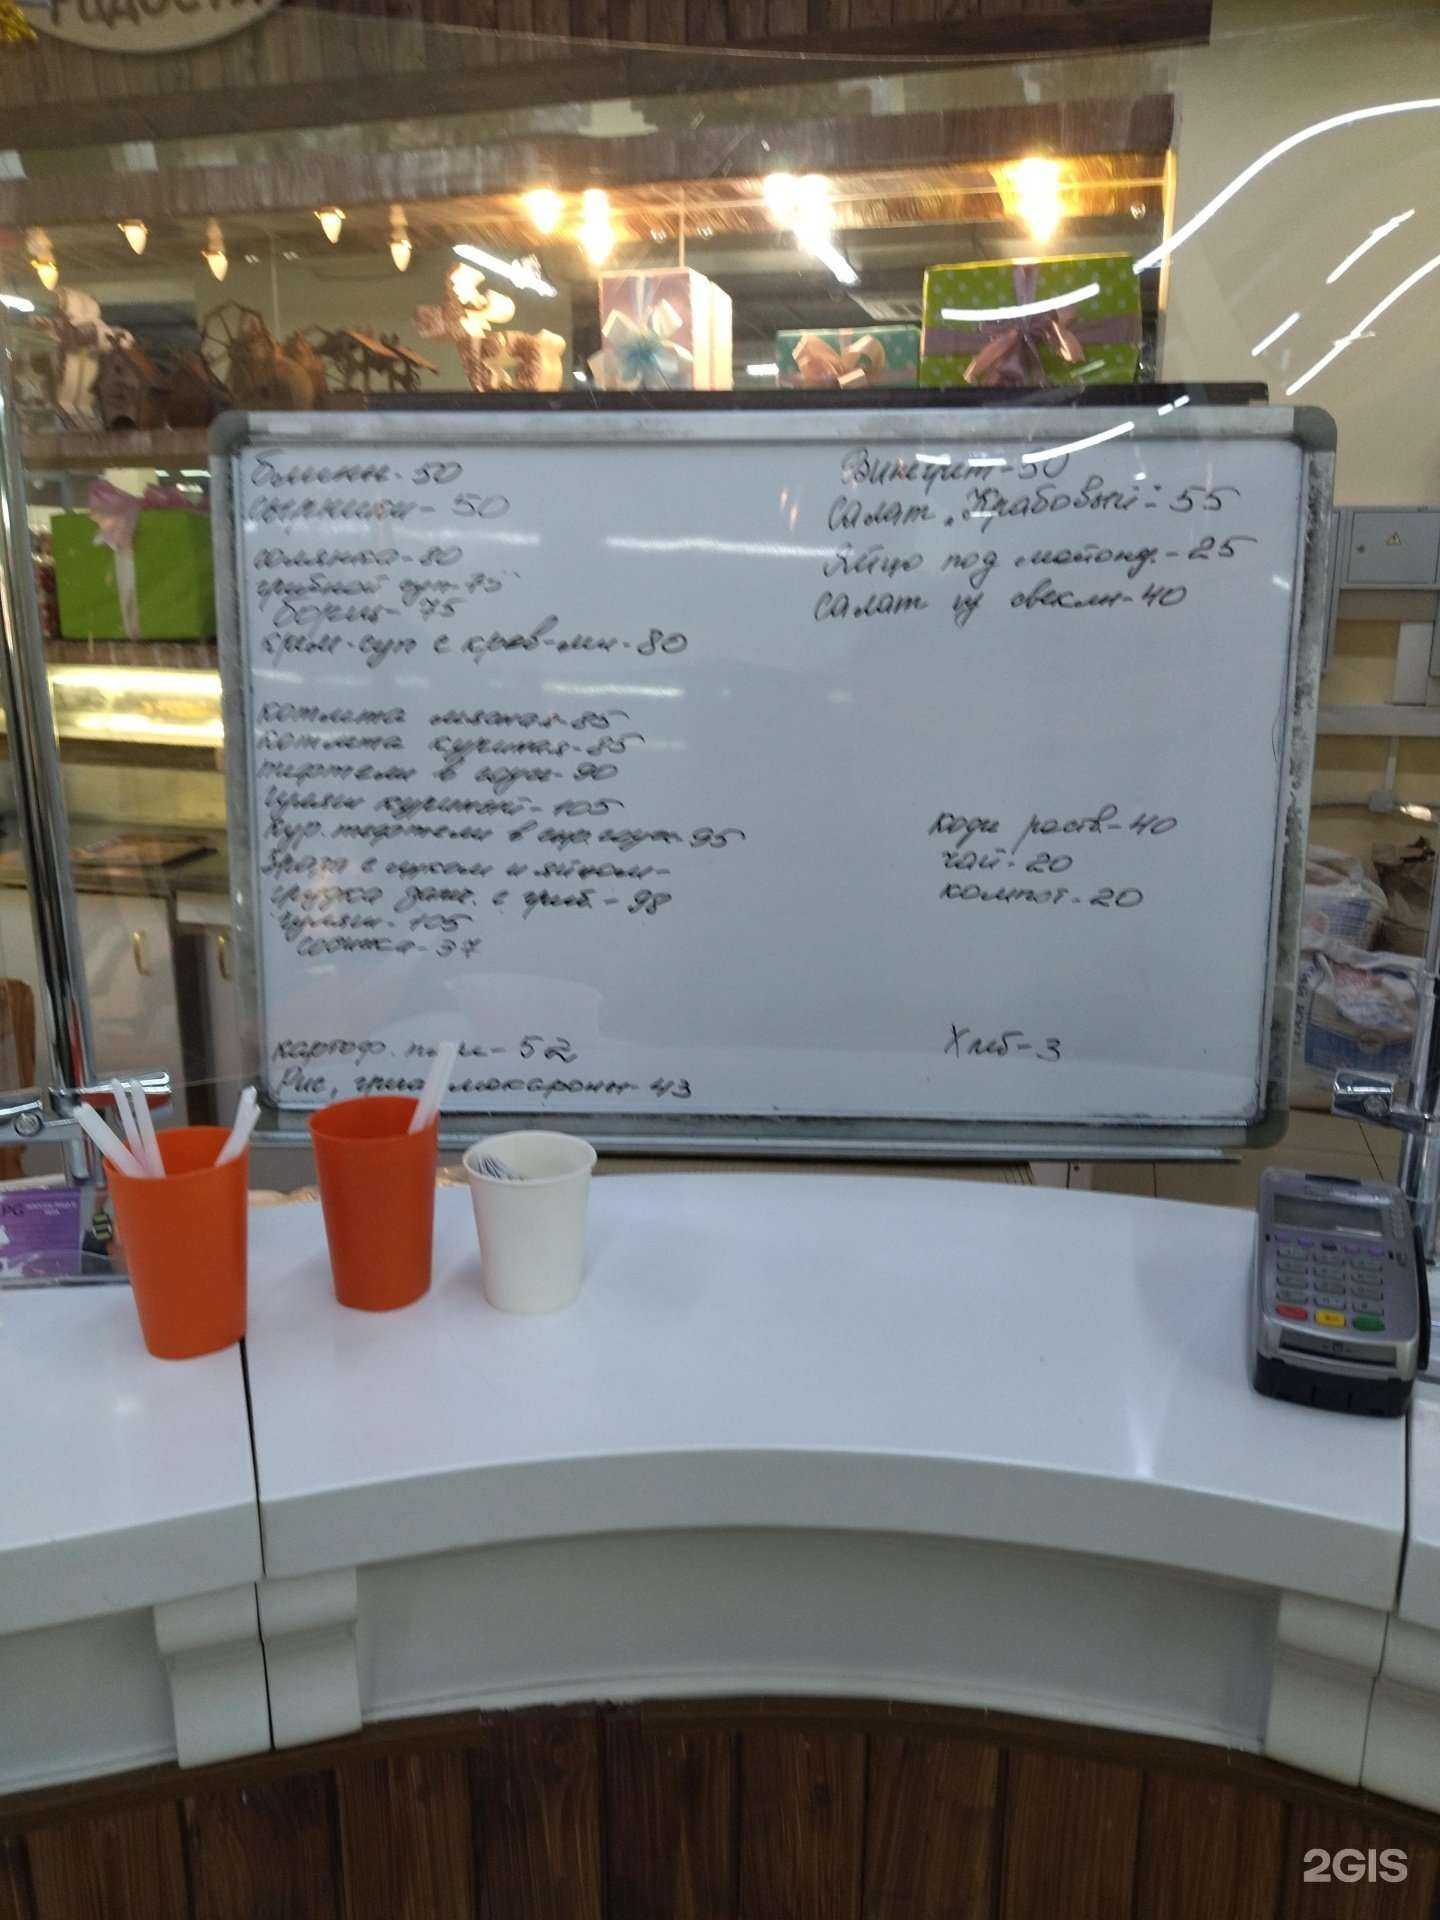 блины-50
сырники-50
солянка-80
грибной суп-75
борщ-75
крем-суп с крев-ми-80
котлета мясная-85
котлета куриная-85
тефтели в соусе-90
гуляш куриный-105
кур. тефтели в сыр. соусе-95
зраза с луком и яйцом-
грудка зап. с гриб.-98
гуляш-105
сосиска-37
картоф. пюре-52
Рис, греча, макароны-43
Винегрет-50
Салат "Крабовый"-55
Яйцо под майонд.-25
Салат из свеклы-40
кофе раств.-40
чай-20
компот-20
Хлеб-3
2GIS